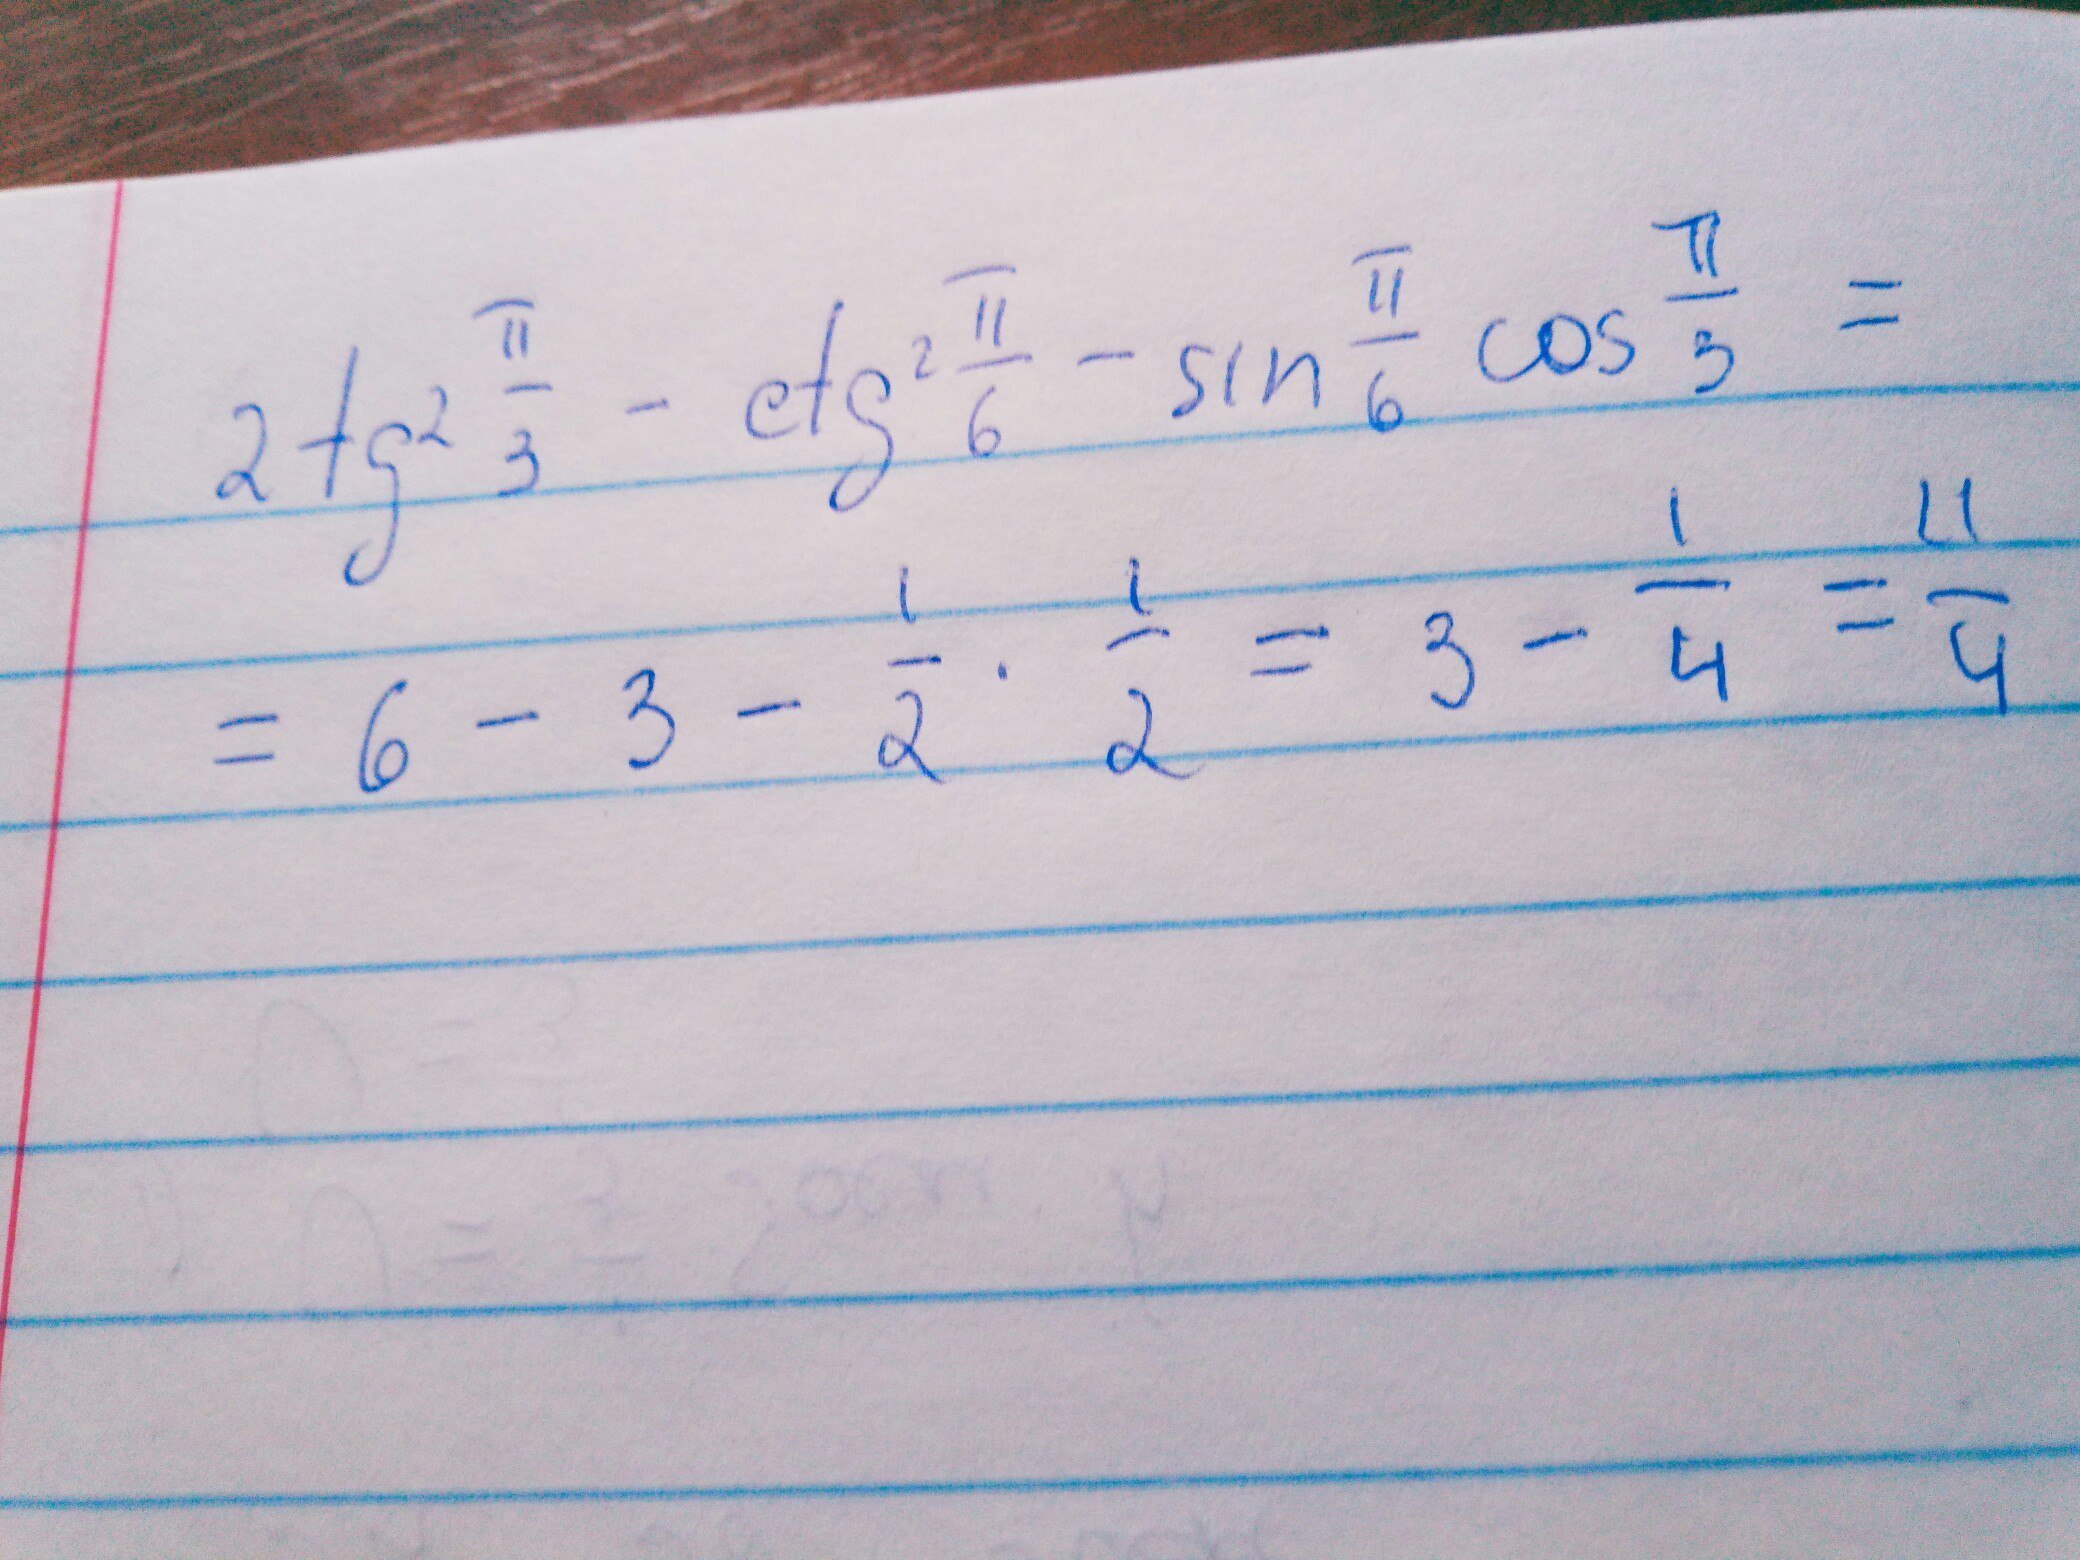 2tg² π/3 - ctg² π/6 - sin π/6 cos π/3 =
= 6 - 3 - 1/2 · 1/2 = 3 - 1/4 = 11/4